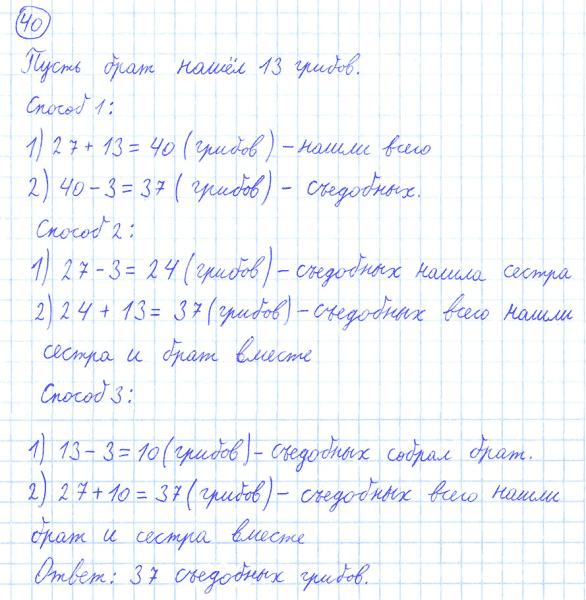 40
Пусть брат нашёл 13 грибов.
Способ 1:
1) 27 + 13 = 40 (грибов) – нашли всего
2) 40 – 3 = 37 ( грибов) – съедобных.
Способ 2:
1) 27 – 3 = 24 (грибов) – съедобных нашла сестра
2) 24 + 13 = 37 (грибов) – съедобных всего нашли
сестра и брат вместе
Способ 3:
1) 13 – 3 = 10 (грибов) – съедобных собрал брат.
2) 27 + 10 = 37 (грибов) – съедобных всего нашли
брат и сестра вместе
Ответ: 37 съедобных грибов.